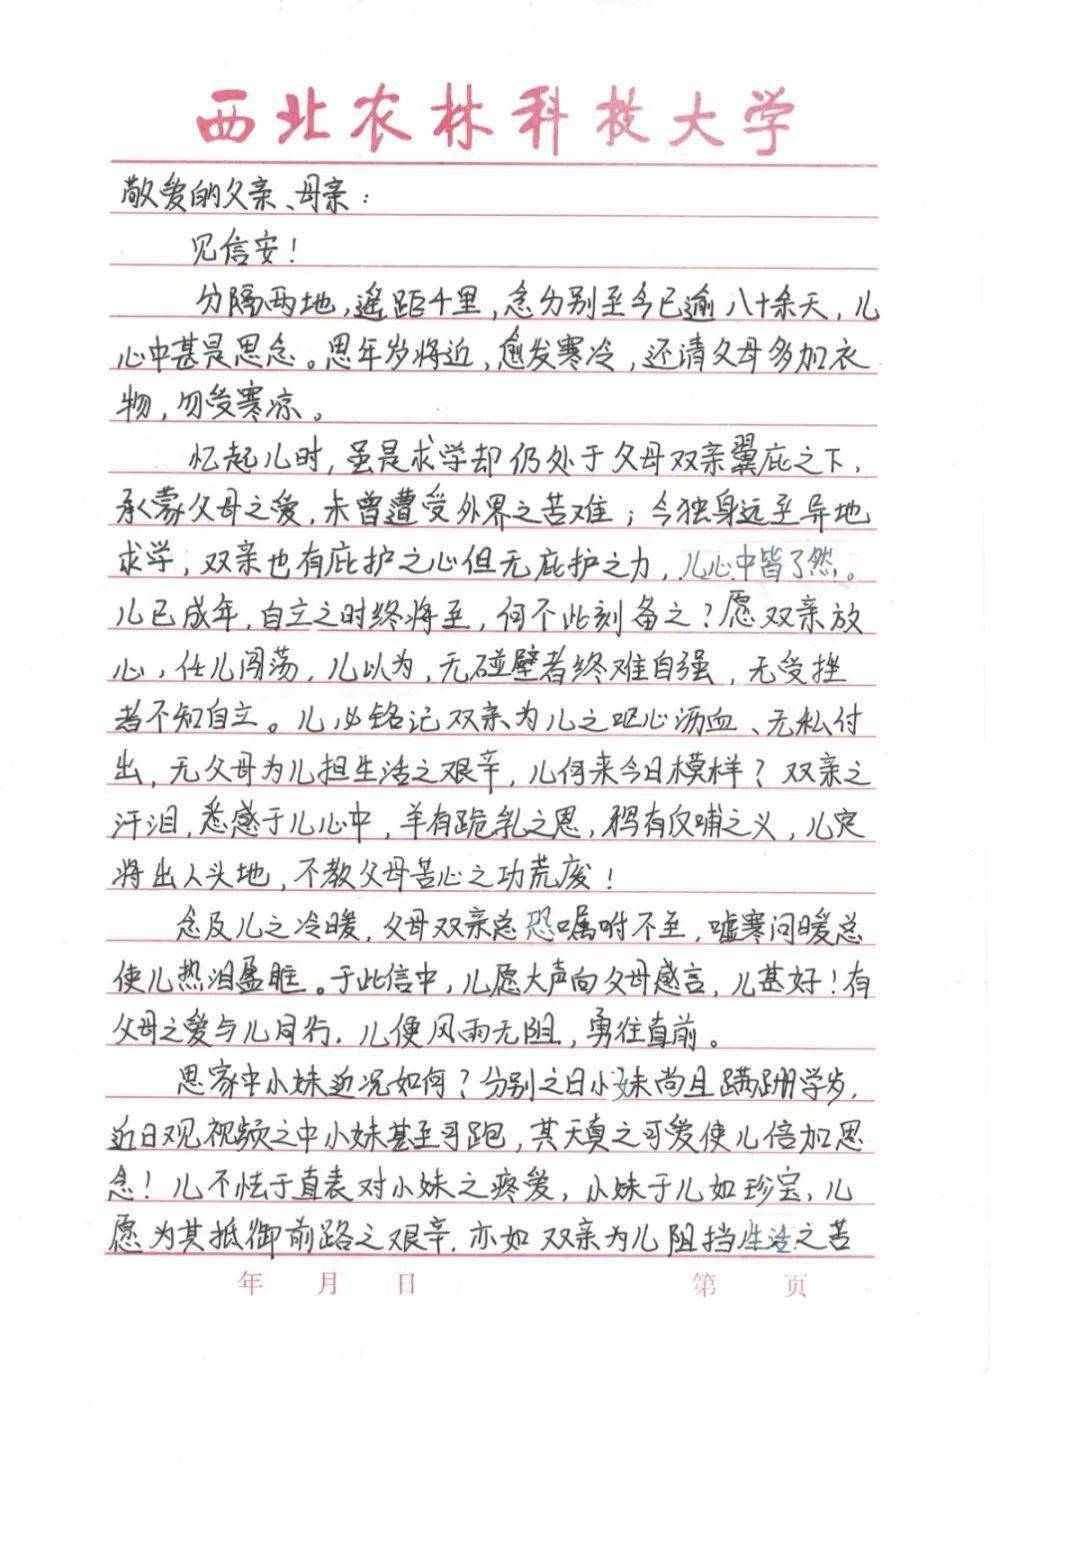 西北农林科技大学
敬爱的父亲、母亲:
见信安!
分隔两地,遥距千里,念分别至今已逾八十余天,儿
心中甚是思念。思年岁将近,愈发寒冷,还请父母多加衣
物,勿受寒凉。
忆起儿时,虽是求学却仍处于父母双亲翼庇之下,
承蒙父母之爱,未曾遭受外界之苦难;今独身远至异地
求学,双亲也有庇护之心但无庇护之力,儿心中皆了然。
儿已成年,自立之时终将至,何不此刻备之?愿双亲放
心,任儿闯荡,儿以为,无碰壁者终难自强,无受挫
者不知自立。儿必铭记双亲为儿之呕心沥血、无私付
出,无父母为儿担生活之艰辛,儿何来今日模样?双亲之
汗泪,悉感于儿心中,羊有跪乳之恩,鸦有反哺之义,儿定
将出人头地,不教父母苦心之功荒废!
念及儿之冷暖,父母双亲总恐嘱咐不至,嘘寒问暖总
使儿热泪盈眶。于此信中,儿愿大声向父母感言,儿甚好!有
父母之爱与儿同行,儿便风雨无阻,勇往直前。
思家中小妹近况如何?分别之日小妹尚且蹒跚学步,
近日观视频之中小妹甚至可跑,其天真之可爱使儿倍加思
念!儿不怯于直表对小妹之疼爱,小妹于儿如珍宝,儿
愿为其抵御前路之艰辛,亦如双亲为儿阻挡生活之苦
年 月 日 第 页